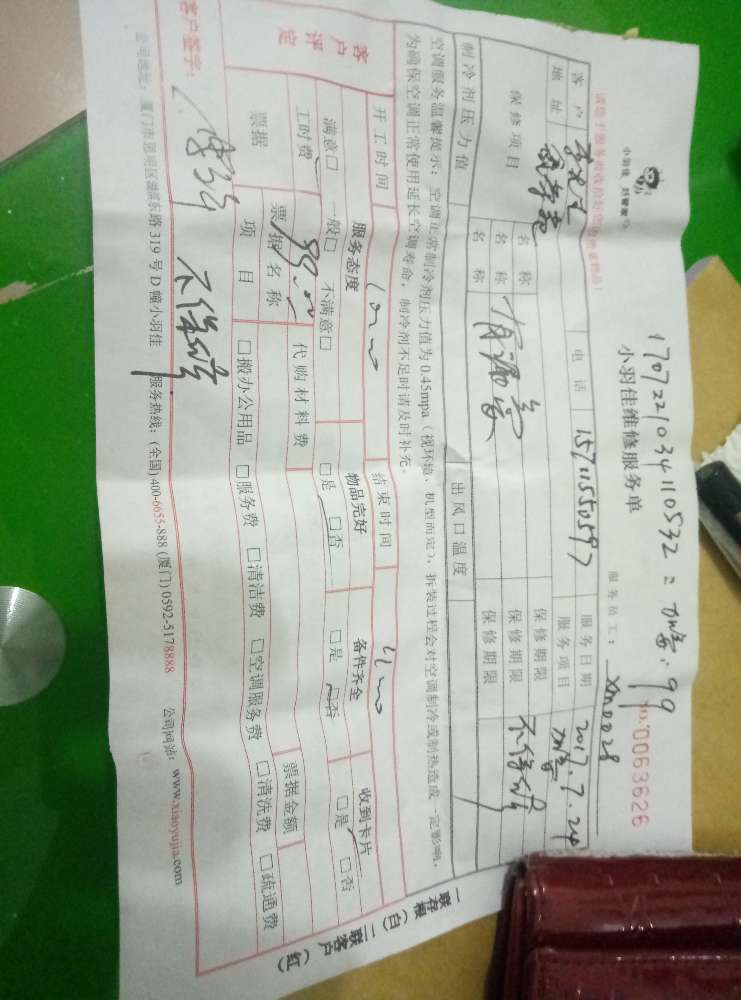 170722103410532
99
小羽佳 好管家
小羽佳维修服务单
NO.0063626
服务员工: xm0028
客户
电话 15711550597
服务日期 2017.7.24
地址
服务项目
保修项目
名称
保修期限
名称 有漏
保修期限 不保修
名称
保修期限
制冷剂压力值
出风口温度
空调服务温馨提示:空调正常制冷剂压力值为0.45mpa(视环境、机型而定),拆装过程会对空调制冷或制热造成一定影响,
为确保空调正常使用延长空调寿命,制冷剂不足时请及时补充。
开工时间
结束时间
客户评定
服务态度
物品完好
备件齐全
收到卡片
满意□ 一般□ 不满意□
□是 □否
□是 □否
□是 □否
工时费 99.00
代购材料费
票据金额
票据
票据名称
项目
□搬办公用品 □服务费 □清洁费 □空调服务费 □清洗费 □疏通费
客户签字:
不保修
公司地址:厦门市思明区湖滨东路319号D幢小羽佳 服务热线:(全国)400-6655-888 (厦门)0592-5178888 公司网站:www.xiaoyujia.com
一联存根(白)二联客户(红)